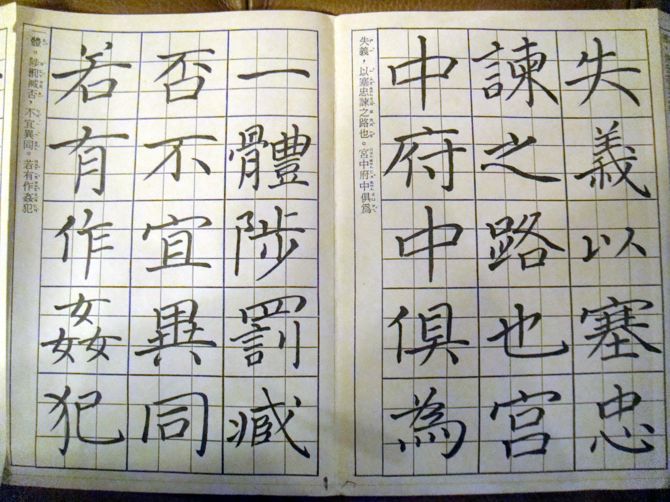 失義以塞忠
諫之路也宮
中府中俱為
失義，以塞忠諫之路也。宮中府中俱爲
一體陟罰臧
否不宜異同
若有作姦犯
體。陟罰臧否，不宜異同。若有作姦犯